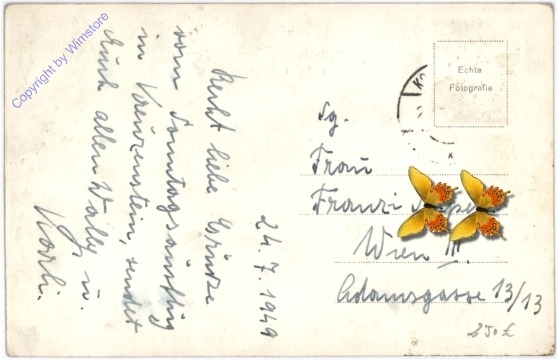 Copyright by Wimstore
24.7.1949
Recht liebe Grüsse
vom Sonntagsausflug
in Kreuzenstein, sendet
Euch allen Wally u.
Karli.
Echte
Fotografie
Sg.
Frau
Franzi
Wien II.
Adamsgasse 13/13
250£